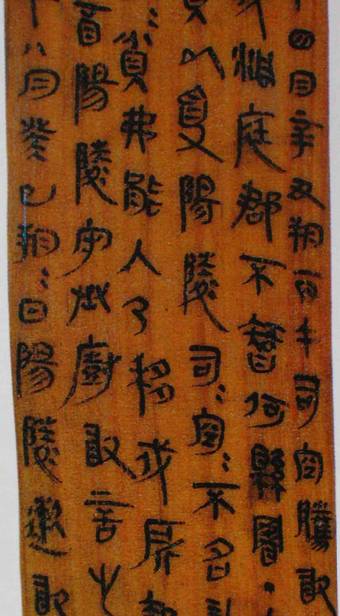 四月辛丑朔丙午司空騰敢
戍洞庭郡不智何縣署·
責以受陽陵司=空=不名計
=貧弗能入乃移戍所報
酉陽陵守丞廚敢言之
八月癸巳朔=日陽陵遬敢